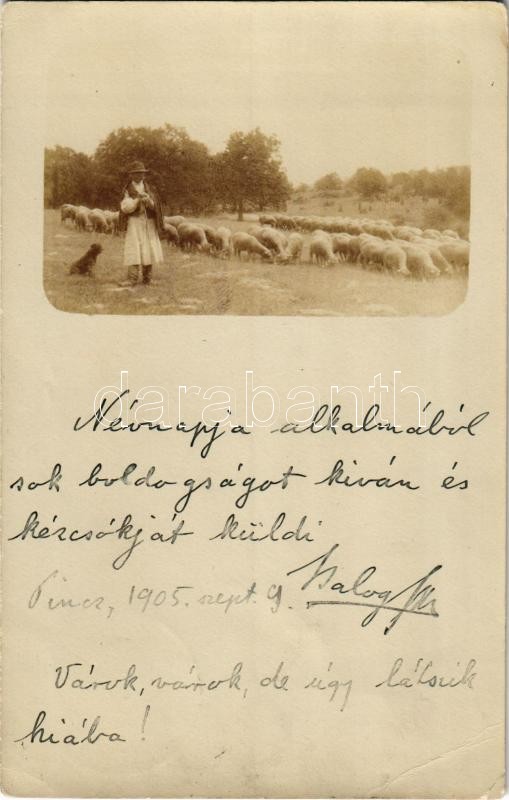 darabanth
Névnapja alkalmából
sok boldogságot kiván és
kézcsókját küldi
Pincz, 1905. szept. 9. Balog
Várok, várok, de úgy látszik
hiába!